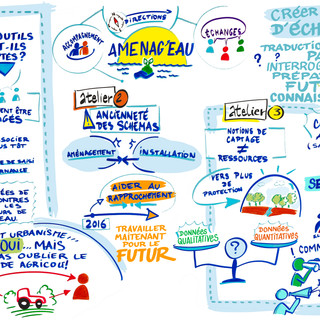 UTILS
T-ILS
TES?
ENT ÊTRE
GÉS
SOCIER
US TÔT
DE SAISI
RNANCE
ÉES DE
ONTRES
LES
URS DE
EAU.
T URBANISME...
OUI... MAIS
AS OUBLIER LE
DE AGRICOLE!
DIRECTIONS
ACCOMPAGNEMENT
ÉCHANGES
AMENAG'EAU
atelier 2
ANCIENNETÉ
DES SCHÉMAS
AMÉNAGEMENT
INSTALLATION
AIDER AU
RAPPROCHEMENT
2016
TRAVAILLER
MAINTENANT
POUR LE
FUTUR
CRÉER
D'ÉCH
TRADUCTION
PA
INTERROG
PRÉPA
FUT
CONNAIS
?
?
atelier 3
NOTIONS DE
CAPTAGE
≠
RESSOURCES
VERS PLUS
DE
PROTECTION
DONNÉES
QUALITATIVES
?
DONNÉES
QUANTITATIVES
SE
COMM